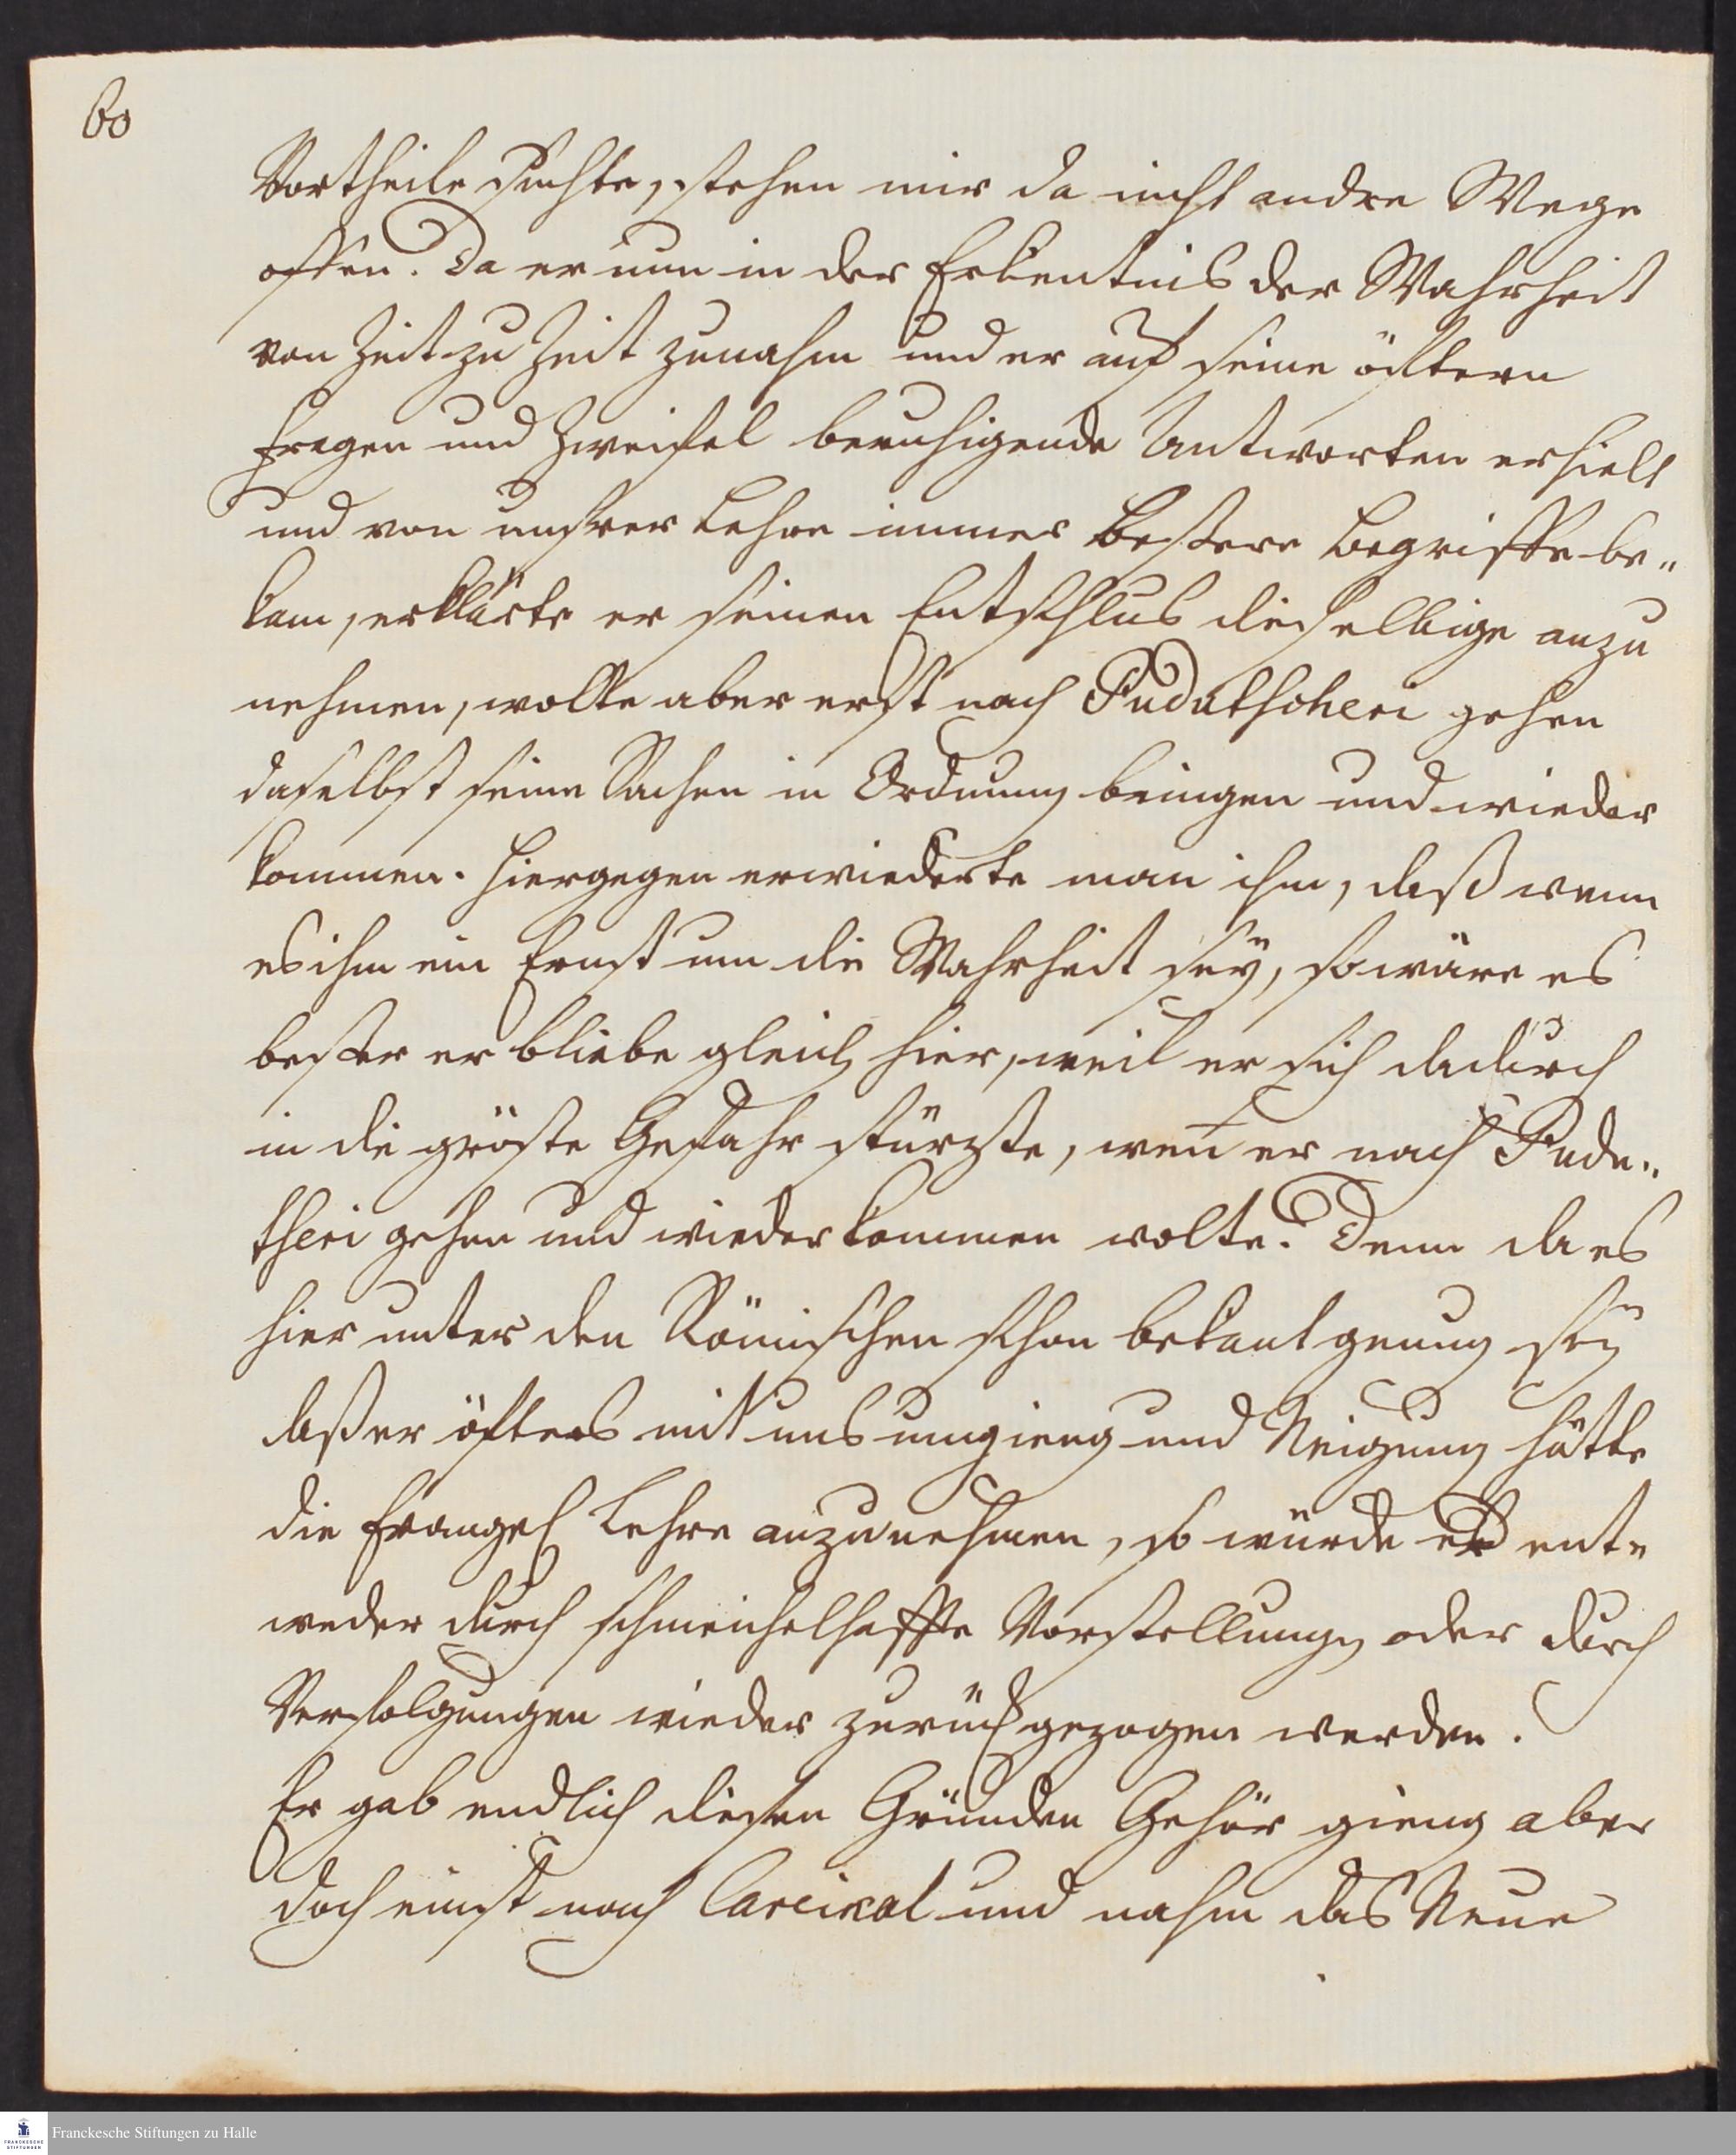 60
Vortheile suchte, stehen mir da nicht andre Wege
offen. Da er nun in der Erkentnis der Wahrheit
von Zeit zu Zeit zunahm und er auf seine öftern
Fragen und Zweifel beruhigende Antworten erhielt
und von unsrer Lehre immer bessere Begriffe be„
kam, erklärte er seinen Entschlus dieselbige anzu
nehmen, wolte aber erst nach Pudutscheri gehen
daselbst seine Sachen in Ordnung bringen und wieder
kommen. Hiergegen erwiederte man ihm, daß wenn
es ihm ein Ernst um die Wahrheit seÿ, so wäre es
besser er bliebe gleich hier, weil er sich dadurch
in die gröste Gefahr stürzte, weñ er nach Pudu„
tscheri gehen und wiederkommen wolte. Denn da es
hier unter den Römischen schon bekant genug seÿ
daß er öfters mit uns umgieng und Neigung hätte
die Evangel Lehre anzunehmen, so würde er ent„
weder durch schmeichelhaffte Vorstellung oder durch
Verfolgungen wieder zurückgezogen werden.
Er gab endlich diesen Gründen Gehör gieng aber
doch einst nach Careikal und nahm das Neue
Franckesche Stiftungen zu Halle
FRANCKESCHE STIFTUNGEN